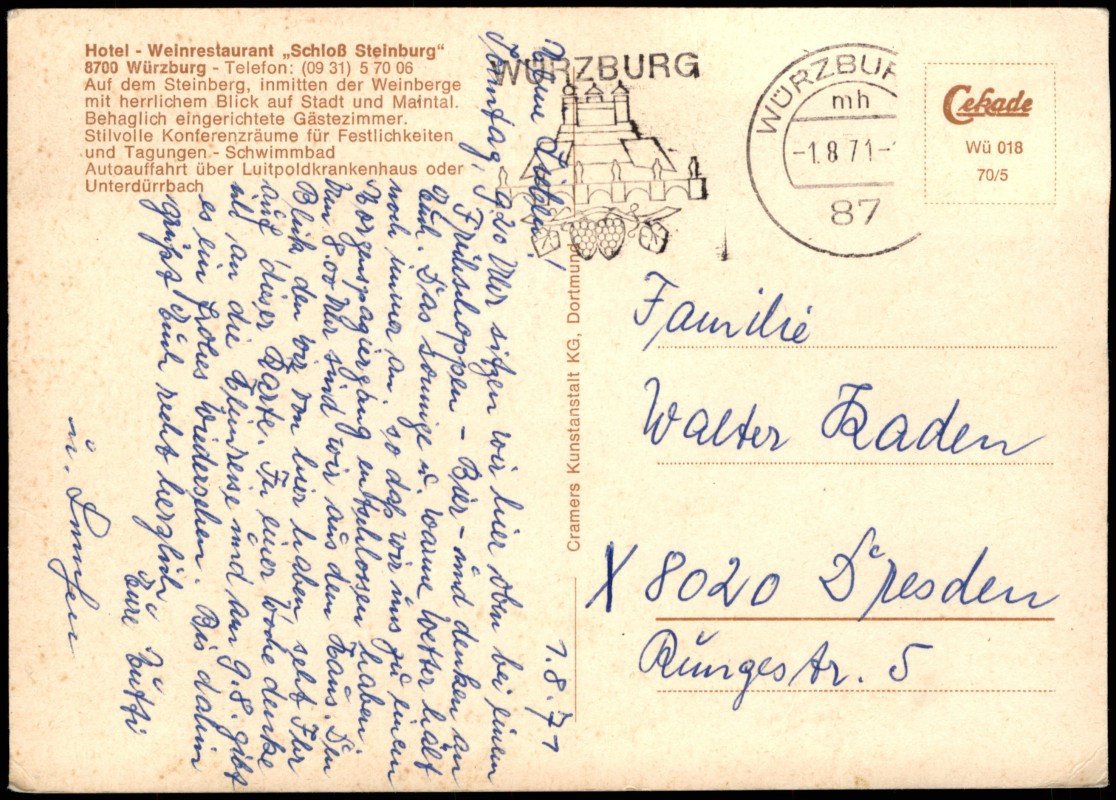 Hotel - Weinrestaurant „Schloß Steinburg"
8700 Würzburg - Telefon: (09 31) 5 70 06
Auf dem Steinberg, inmitten der Weinberge
mit herrlichem Blick auf Stadt und Maintal.
Behaglich eingerichtete Gästezimmer.
Stilvolle Konferenzräume für Festlichkeiten
und Tagungen - Schwimmbad
Autoauffahrt über Luitpoldkrankenhaus oder
Unterdürrbach
WÜRZBURG
WÜRZBUR
mh
-1.8.71-
87
Cekade
Wü 018
70/5
Cramers Kunstanstalt KG, Dortmund
1.8.71
Meine Lieben!
Sonntag, 1920 Uhr sitzen wir hier oben bei einem
Frühschoppen - Bier - und denken an
Euch. Das sonnige u. warme Wetter hält
noch immer an, so daß wir uns zu einem
Morgenspaziergang entschlossen haben.
Um 8.00 Uhr sind wir aus dem Haus. Den
Blick, den wir von hier haben, seht Ihr
auf dieser Karte. In einer Woche denke
ich an die Heimreise und am 9.8. gibt
es ein frohes Wiedersehen. Bis dahin
grüßt Euch recht herzlich
Eure Mutti
u.
Familie
Walter Kaden
X 8020 Dresden
Rungestr. 5